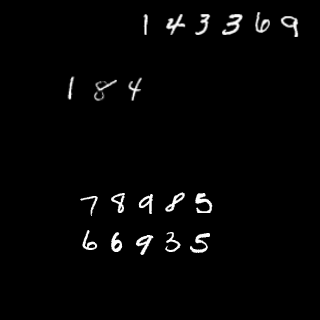 143369
184
78985
66935